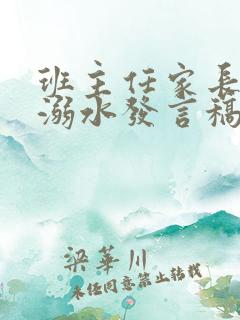 班主任家長
溺水發言稿
梁華川
未經同意禁止轉載